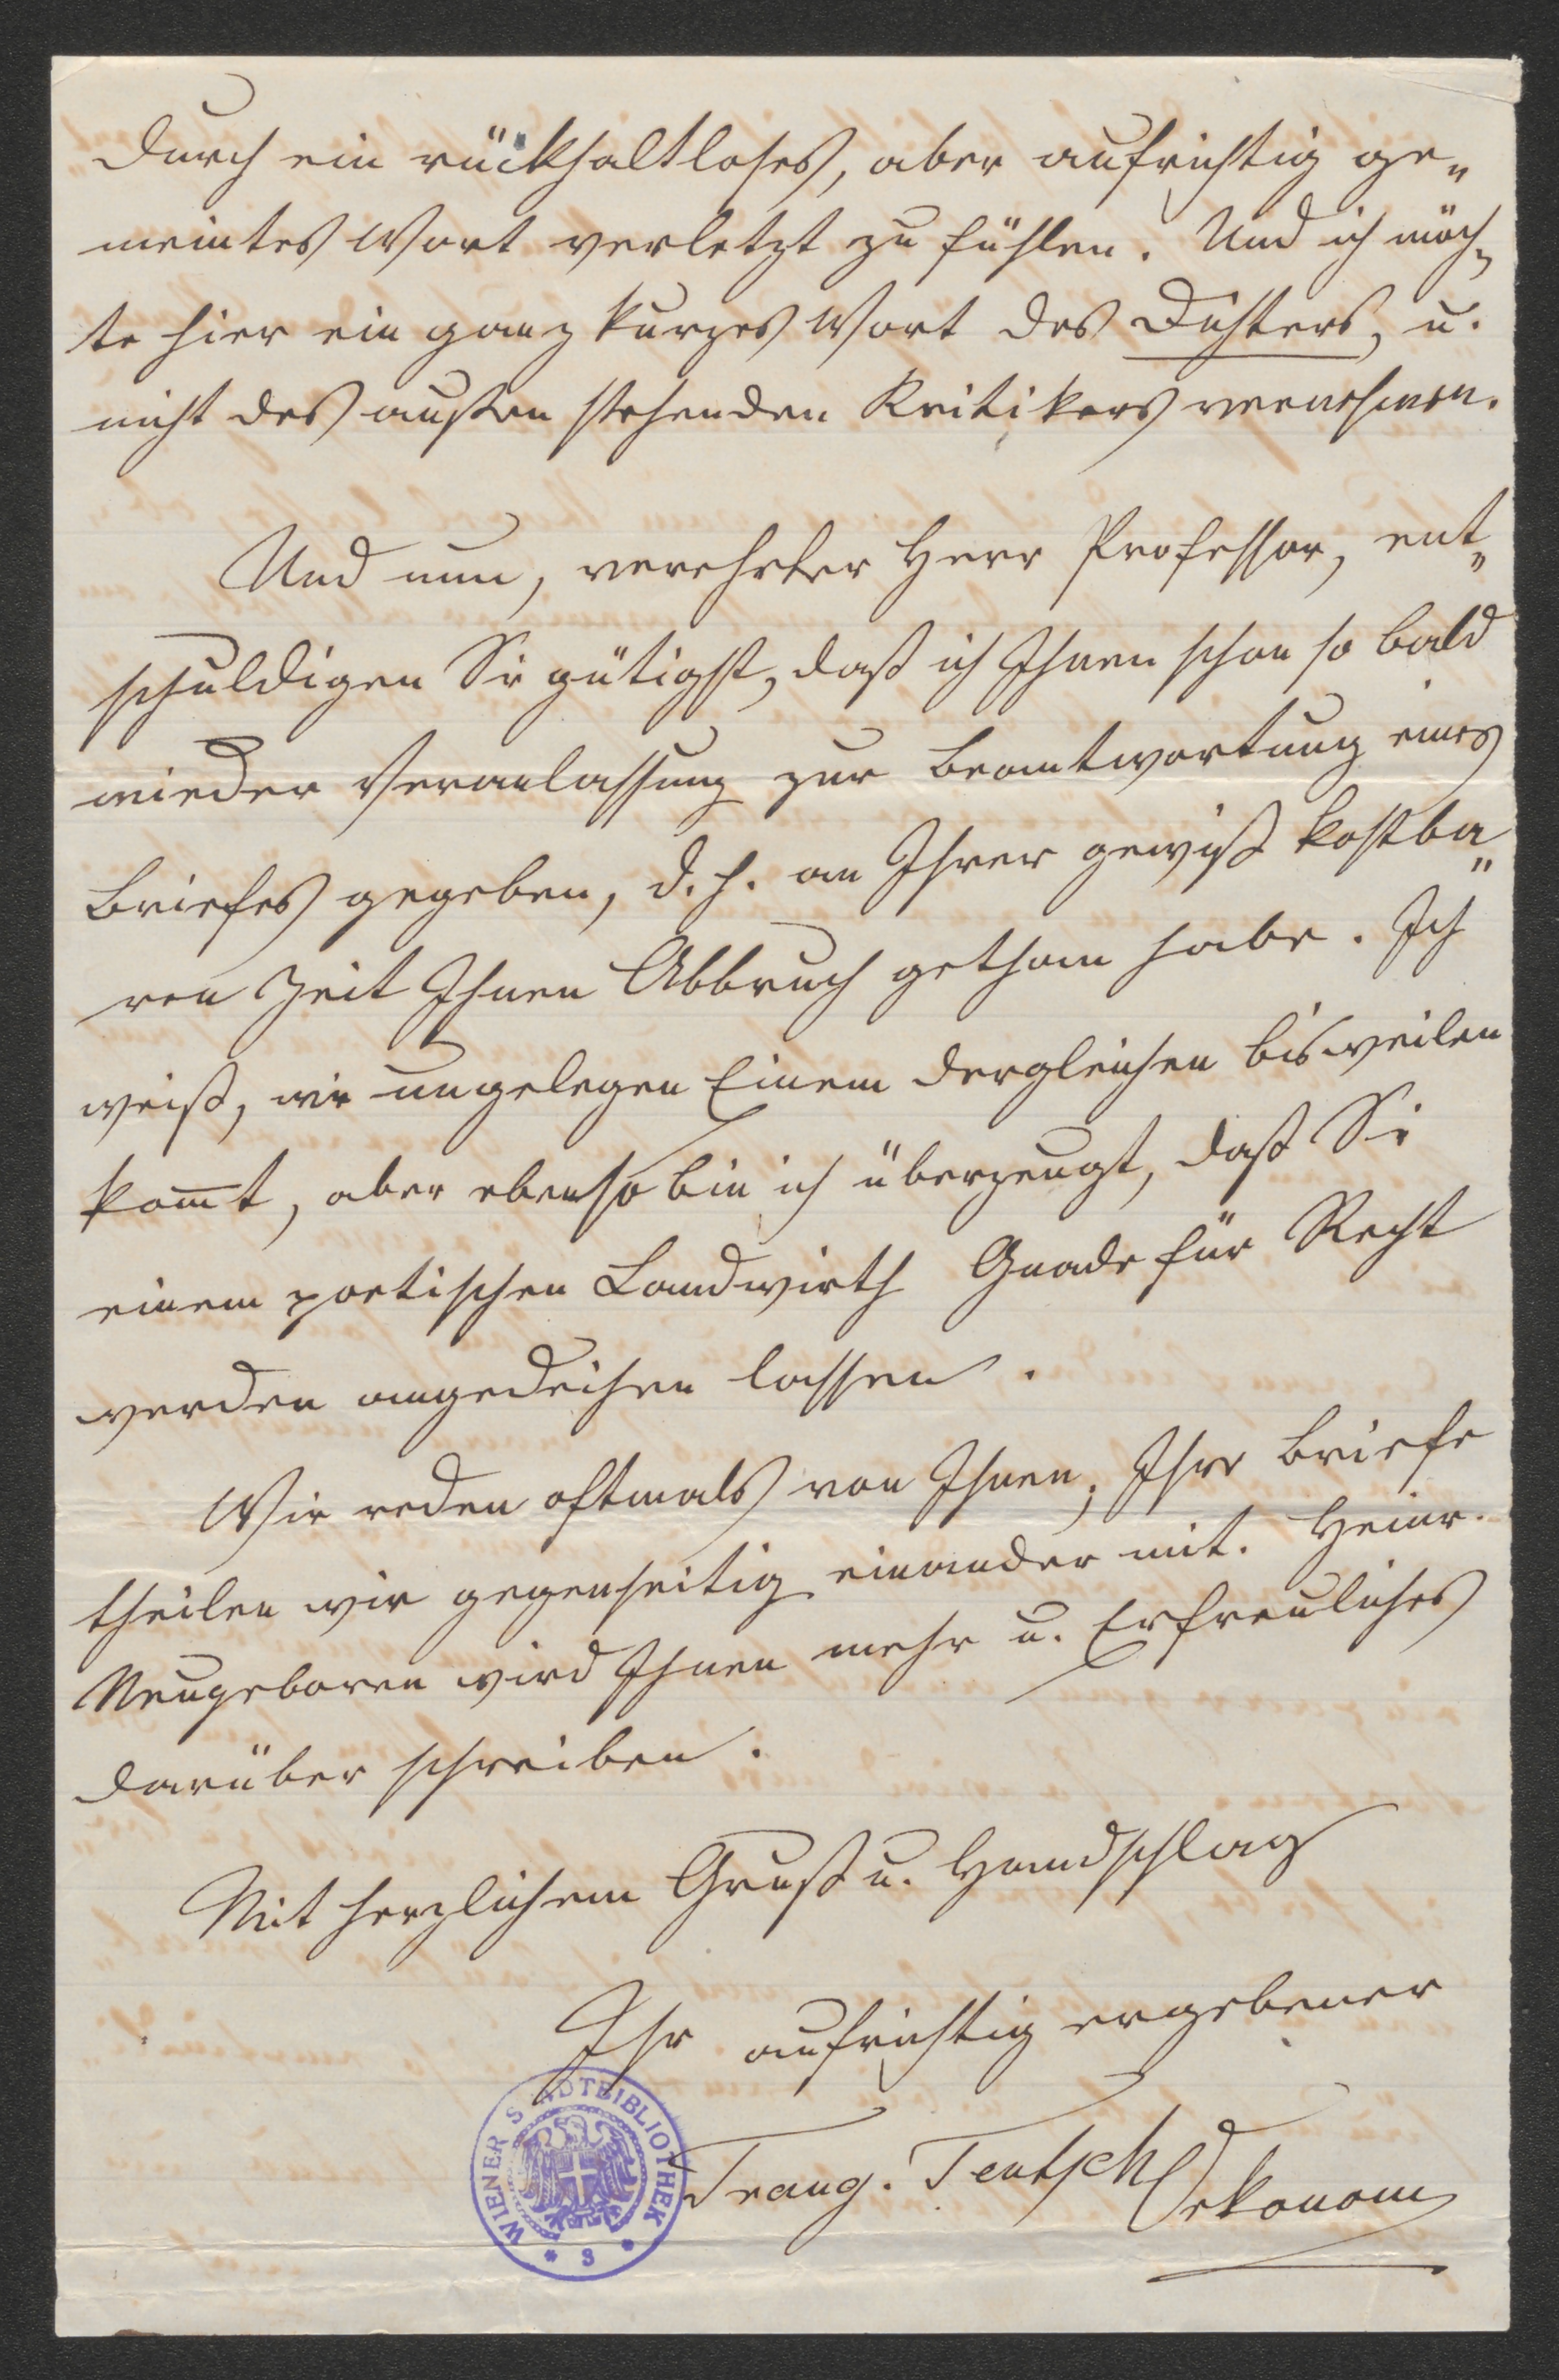 durch ein rückhaltloses, aber aufrichtig ge„
meintes Wort verletzt zu fühlen. Und ich möch„
te hier ein ganz kurzes Wort des Dichters, u.
nicht des außen stehenden Kritikers vernehmen.
Und nun, verehrter Herr Professor, ent„
schuldigen Sie gütigst, daß ich Ihnen schon so bald
wieder Veranlassung zur Beantwortung eines
Briefes gegeben, d. h. an Ihrer gewiß kostba„
ren Zeit Ihnen Abbruch gethan habe. Ich
weiß, wie ungelegen Einem dergleichen bisweilen
kom̅t, aber ebenso bin ich überzeugt, daß Sie
einem poetischen Landwirth Gnade für Recht
werden angedeihen lassen.
Wir reden oftmals von Ihnen, Ihre Briefe
theilen wir gegenseitig einander mit. Heinr.
Neugeboren wird Ihnen mehr u. Erfreuliches
darüber schreiben.
Mit herzlichem Gruß u. Handschlag
Ihr aufrichtig ergebener
Traug. Teutsch Oekonom
WIENER STADTBIBLIOTHEK * 3 *